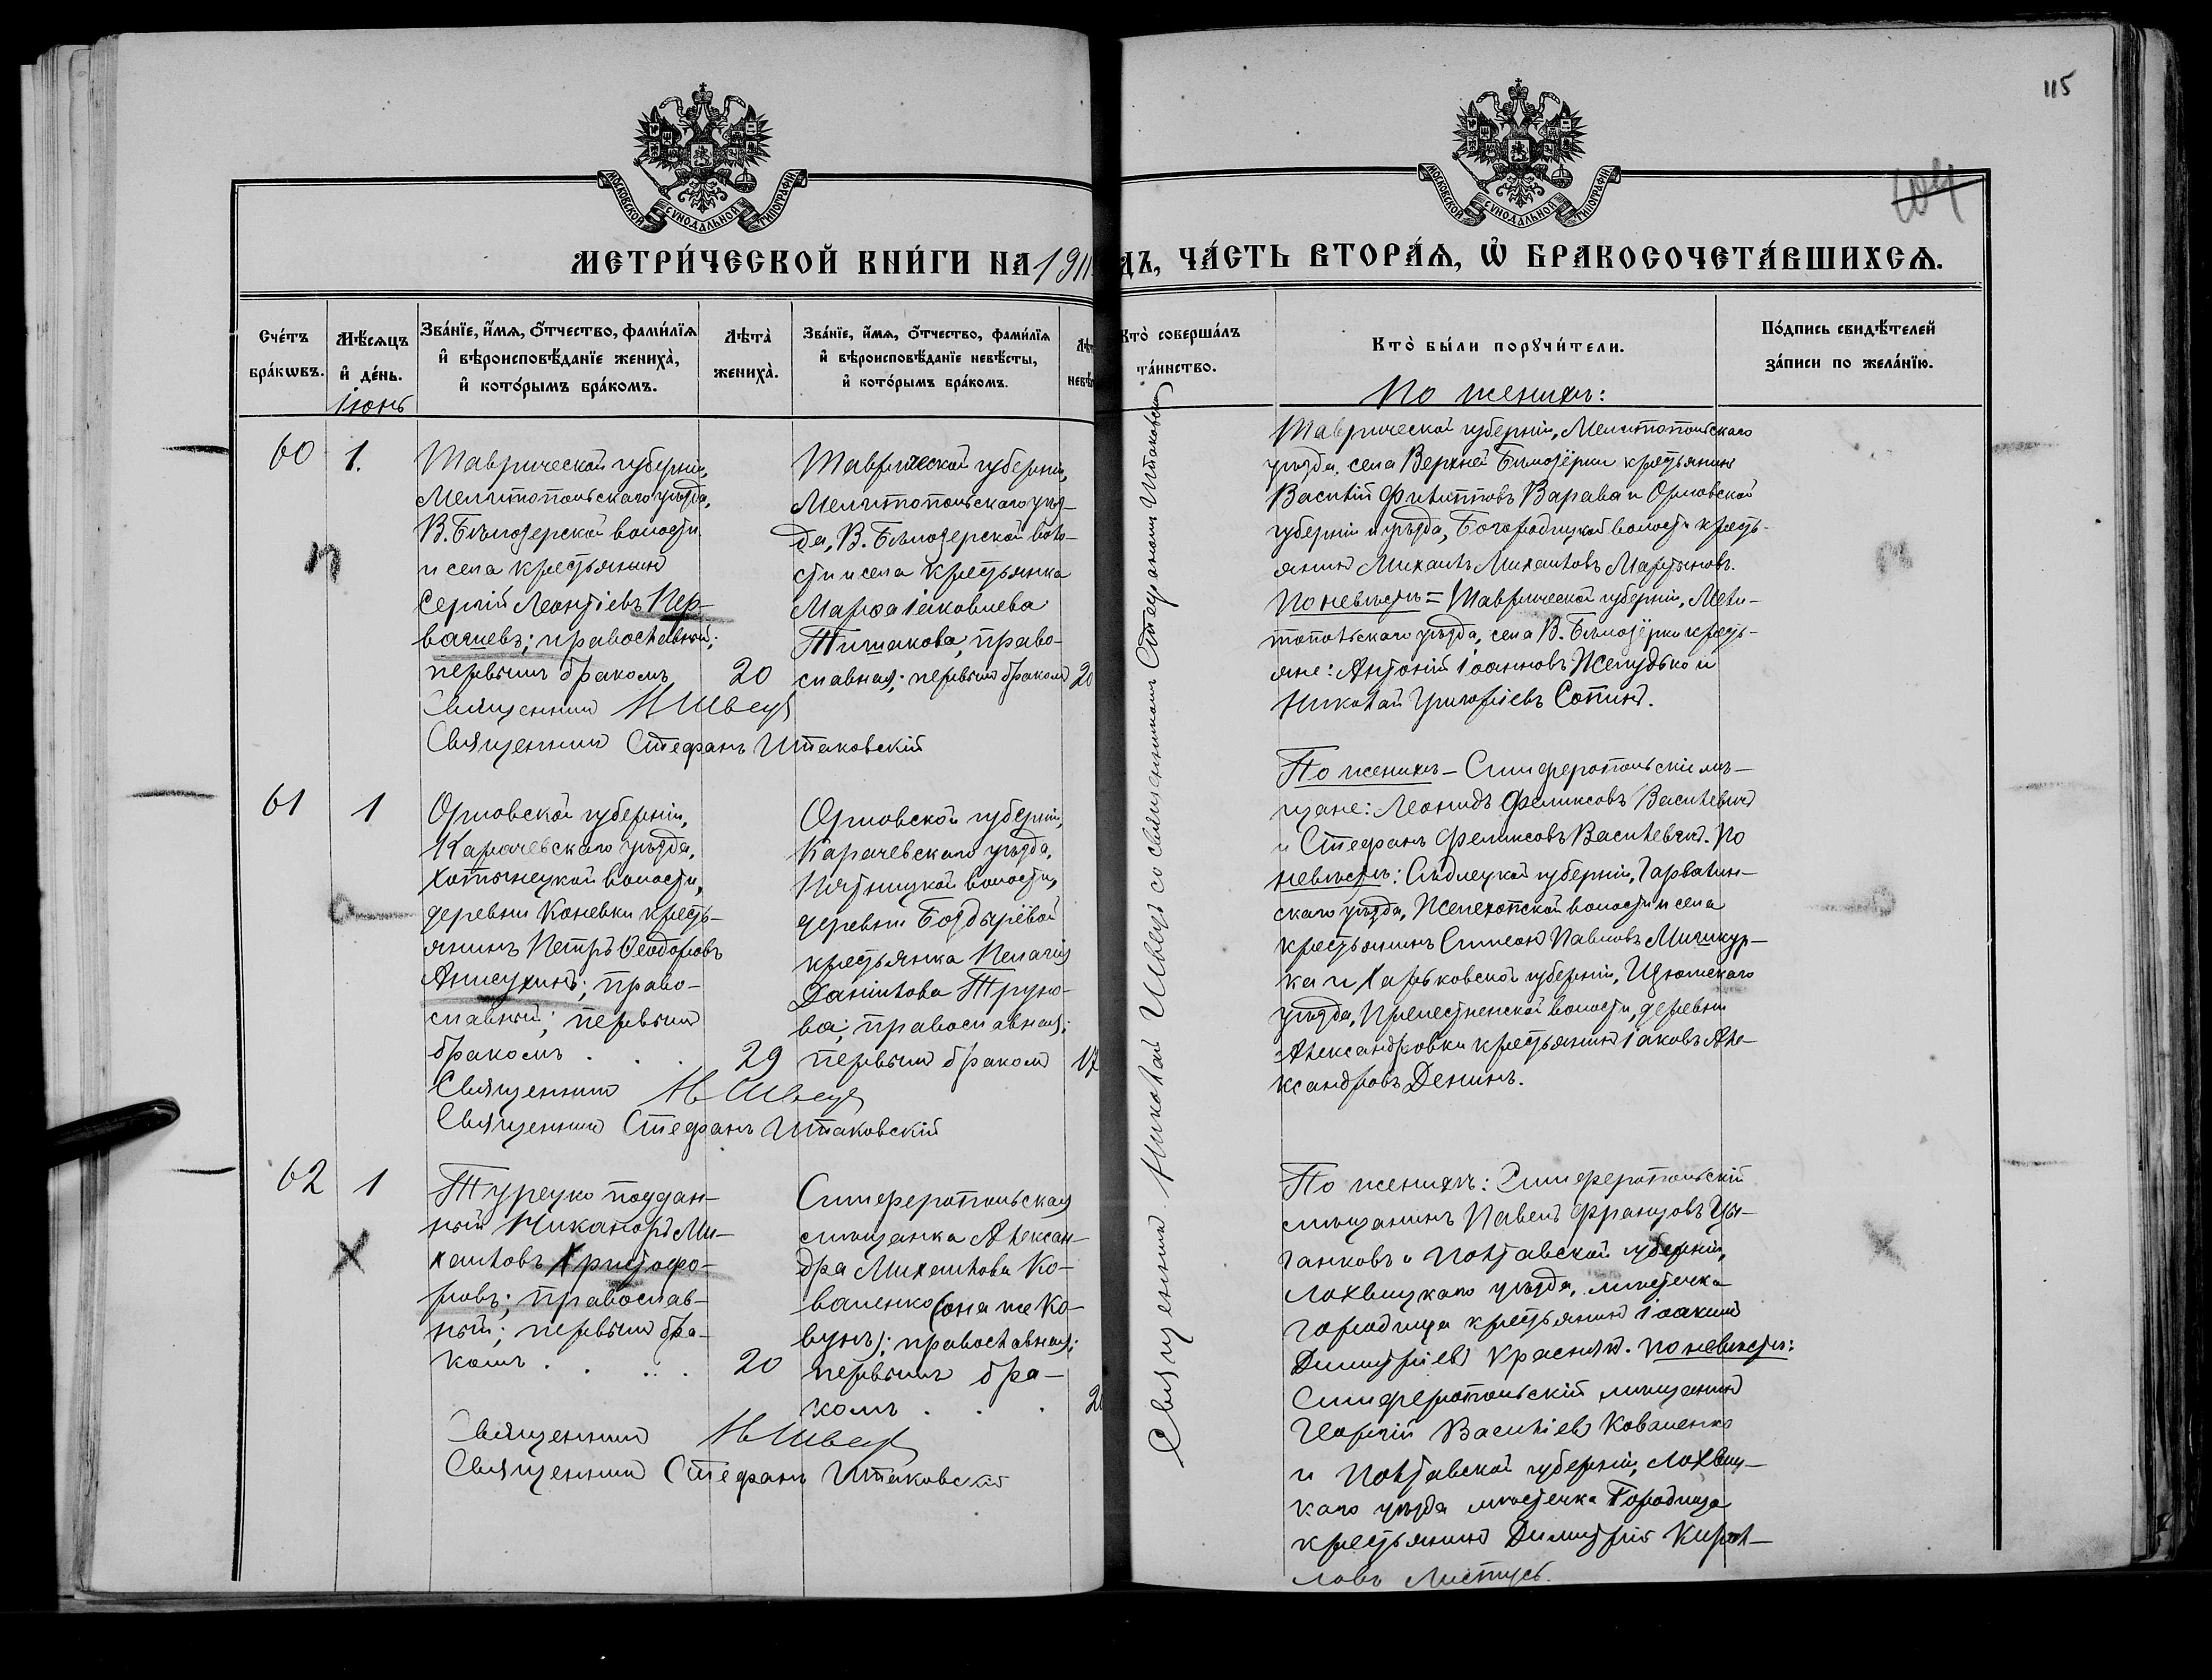 115
МОСКОВСКОЙ СѴНОДАЛЬНОЙ ТИПОГРАФІИ
МОСКОВСКОЙ СѴНОДАЛЬНОЙ ТИПОГРАФІИ
МЕТРИ́ЧЕСКОЙ КНИ́ГИ НА 1911
ДЪ, ЧА́СТЬ ВТОРА́Ѧ, Ѽ БРАКОСОЧЕТА́ВШИХСѦ.
Сче́тъ бра́кѡвъ.
Мѣ́сѧцъ и҆ де́нь.
Зва́нїе, и҆́мѧ, ѻ҆́тчество, фами́лїѧ
и҆ вѣроисповѣ́данїе жениха̀,
и҆ кото́рымъ бра́комъ.
Лѣта̀ жениха̀.
Зва́нїе, и҆́мѧ, ѻ҆́тчество, фами́лїѧ
и҆ вѣроисповѣ́данїе невѣ́сты,
и҆ кото́рымъ бра́комъ.
Кто̀ соверша́лъ
та́инство.
Кто̀ бы́ли порꙋчи́тели.
По́дпись свидѣ́телей
за́писи по жела́нїю.
Іюнь
По женихѣ:
60
1.
Таврической губерніи,
Мелитопольскаго уѣзда,
В. Бѣлозерской волости
и села крестьянинъ
Сергій Леонтіевъ Пер-
вачиевъ; православный;
первымъ бракомъ
20
Таврической губерніи,
Мелитопольскаго уѣз-
да, В. Бѣлозерской воло-
сти и села крестьянка
Марѳа Іаковлева
Тишакова; право-
славная; первымъ бракомъ
20
Священникъ Н Швецъ
Священникъ Стефанъ Штаковскій
Таврической губерніи, Мелитопольскаго
уѣзда, села Верхней Бѣлозёрки крестьянинъ
Василій Филипповъ Варава и Орловской
губерніи и уѣзда, Богородицкой волости кресть-
янинъ Михаилъ Михаиловъ Мартыновъ.
По невѣстѣ = Таврической губерніи, Мели-
топольскаго уѣзда, села В. Бѣлозёрки кресть-
яне: Антоній Іоанновъ Желудько и
Николай Григоріевъ Сопинъ.
61
1
Орловской губерніи,
Карачевскаго уѣзда,
Хотынецкой волости,
деревни Коневки кресть-
янинъ Петръ Ѳеодоровъ
Анисухинъ; право-
славный; первымъ
бракомъ . . .
29
Орловской губерніи,
Карачевскаго уѣзда,
Пятницкой волости,
деревни Болдырёвой
крестьянка Пелагія
Даніилова Труно-
ва; православная;
первымъ бракомъ
17
Священникъ Н Швецъ
Священникъ Стефанъ Штаковскій
По женихѣ - Симферопольскіе мѣ-
щане: Леонидъ Феликсовъ Василевичъ
и Стефанъ Феликсовъ Василевичъ. По
невѣстѣ: Сѣдлецкой губерніи, Гарволин-
скаго уѣзда, Желехопской волости и села
крестьянинъ Симеонъ Павловъ Мишкур-
ка и Харьковской губерніи, Изюмскаго
уѣзда, Прелестненской волости, деревни
Александровки крестьянинъ Іаковъ Але-
ксандровъ Денинъ.
62
1
Турецко поддан-
ный Никаноръ Ми-
хаиловъ Христофо-
ровъ; православ-
ный; первымъ бра-
комъ . . . .
20
Симферопольская
мѣщанка Алексан-
дра Михаилова Ко-
валенко (она же Ко-
вунъ); православная;
первымъ бра-
комъ . . .
Священникъ Н Швецъ
Священникъ Стефанъ Штаковскій
По женихѣ: Симферопольскій
мѣщанинъ Павелъ Францовъ Цы-
ганковъ и Полтавской губерніи,
Лохвицкаго уѣзда, мѣстечка
Городища крестьянинъ Іоакимъ
Димитріевъ Краснякъ. По невѣстѣ:
Симферопольскій мѣщанинъ
Георгій Василіевъ Коваленко
и Полтавской губерніи, Лохвиц-
каго уѣзда мѣстечка Городища
крестьянинъ Димитрій Кирил-
ловъ Листусь.
Священникъ Николай Швецъ со священникомъ Стефаномъ Штаковскимъ